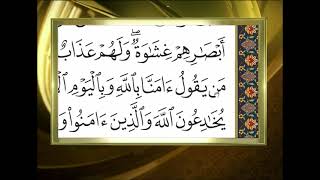 أَبْصَٰرِهِمْ غِشَٰوَةٌ ۖ وَلَهُمْ عَذَابٌ
مَن يَقُولُ ءَامَنَّا بِٱللَّهِ وَبِٱلْيَوْمِ
يُخَٰدِعُونَ ٱللَّهَ وَٱلَّذِينَ ءَامَنُوا۟ وَ